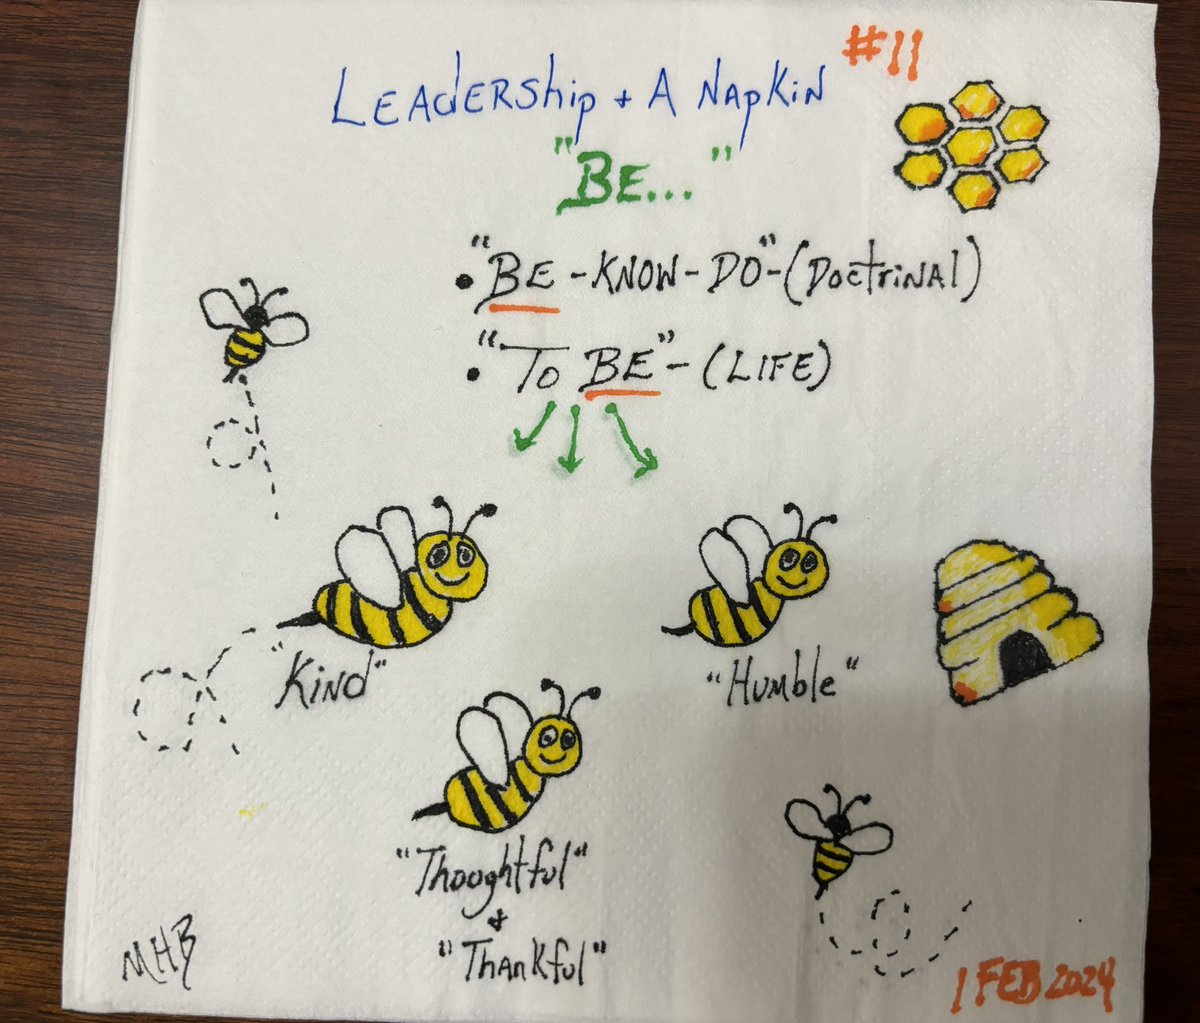 Leadership + A Napkin #11
"Be..."
• "Be - Know - Do" - (Doctrinal)
• "To Be" - (Life)
"Kind"
"Humble"
"Thoughtful"
+
"Thankful"
MHB
1 FEB 2024